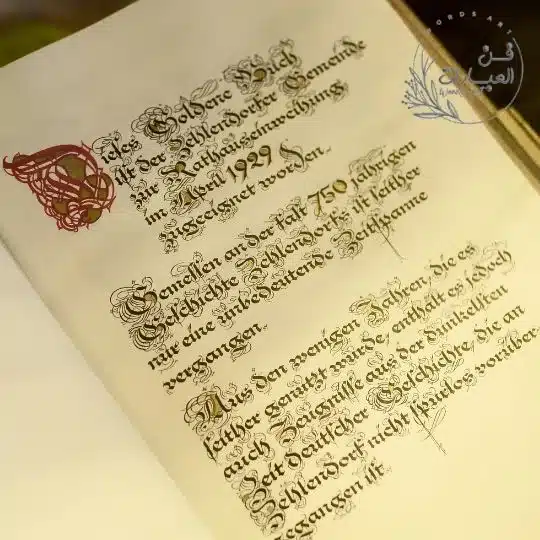 Dieses Goldene Buch
ist der Zehlendorfer Gemeinde
zur Rathauseinweihung
im April 1929
zugeeignet worden.
Gemessen an der fast 750 jährigen
Geschichte Zehlendorfs ist seither
nur eine unbedeutende Zeitspanne
vergangen.
Aus den wenigen Jahren, die es
seither genützt wurde, enthält es jedoch
auch Zeugnisse aus der dunkelsten
Zeit deutscher Geschichte, die an
Zehlendorf nicht spurlos vorüber-
gegangen ist.
WORDS ART
فن
العبارات